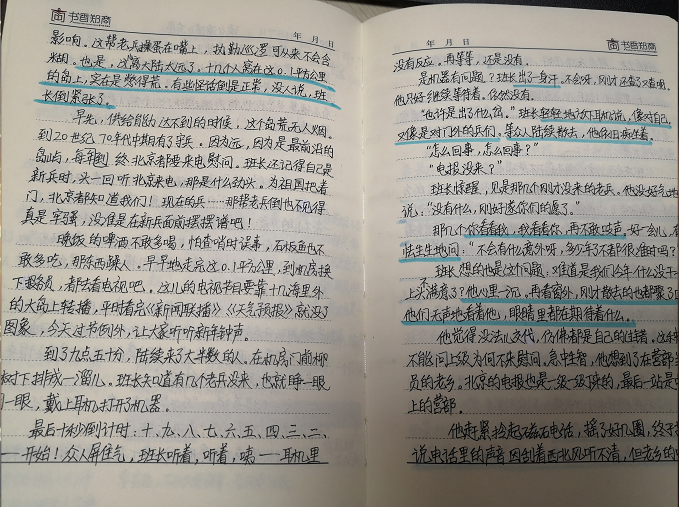 书香知商
年 月 日
影响。这帮老兵操蛋在嘴上，执勤巡逻可从来不会含
糊。也是，这离大陆太远了，十几个人窝在这0.1平方公里
的岛上，实在是憋得荒。有些怪话倒是正常，没人说，班
长倒紧张了。
早先，供给能力达不到的时候，这个岛荒无人烟。
到20世纪70年代中期有了哨兵。因为远，因为是最前沿的
岛屿，每到年终北京都要来电慰问。班长还记得自己是
新兵时，头一回听北京来电，那是什么劲头。为祖国把着
门，北京都知道我们！现在的兵……那帮老兵倒也不见得
真是牢骚，没准是在新兵面前摆摆谱吧！
晚饭的啤酒不敢多喝，怕查哨时误事，石板鱼也不
敢多吃，那东西躁人。早早地走完这0.1平方公里，到机房换
下报务员，都去看电视吧。这儿的电视节目要靠十几海里外
的大岛上转播，平时看完《新闻联播》《天气预报》就没了
图象，今天过节例外，让大家听听新年钟声。
到了九点五十分，陆续来了大半数的人。在机房门前椰
树下排成一溜儿。班长知道有几个老兵没来，也就睁一眼
闭一眼，戴上耳机打开了机器。
最后十秒倒计时：十、九、八、七、六、五、四、三、二、
一开始！众人屏住气，班长听着，听着，咦——耳机里
年 月 日
书香知商
没有反应。再等等，还是没有。
是机器有问题？班长出了一身汗。不会呀，刚才还查了
他只好继续等待着。仍然没有。
"也许是出了什么岔。"班长轻轻地放下耳机说，像对自己，
又像是对门外的兵们。等众人陆续散去，他依旧痴坐着。
"怎么回事，怎么回事？"
"电报没来？"
班长惊醒，见是那几个刚才没来的老兵。他没好气地
说："没有什么，刚好遂你们的愿了。"
那几个你看看我，我看看你，再不敢吱声，好一会儿，有
怯生生地问："不会有什么意外呀，多少年了不都很准时吗？
班长想的也是这个问题。难道是我们今年什么没干
上头满意了？他心里一沉。再看窗外，刚才散去的也都聚了回
他们无声地看着他，眼睛里都在期待着什么。
他觉得没法儿交代，仿佛都是自己的过错。这
不能问上级为何不来慰问，急性智，他想到了在营部当
员的老乡。北京的电报也是一级一级下来的，最后一站是
上的营部。
他赶紧捡起磁石电话，摇了好几圈，终于
说电话里的声音因刮着西北风听不清，但老乡的